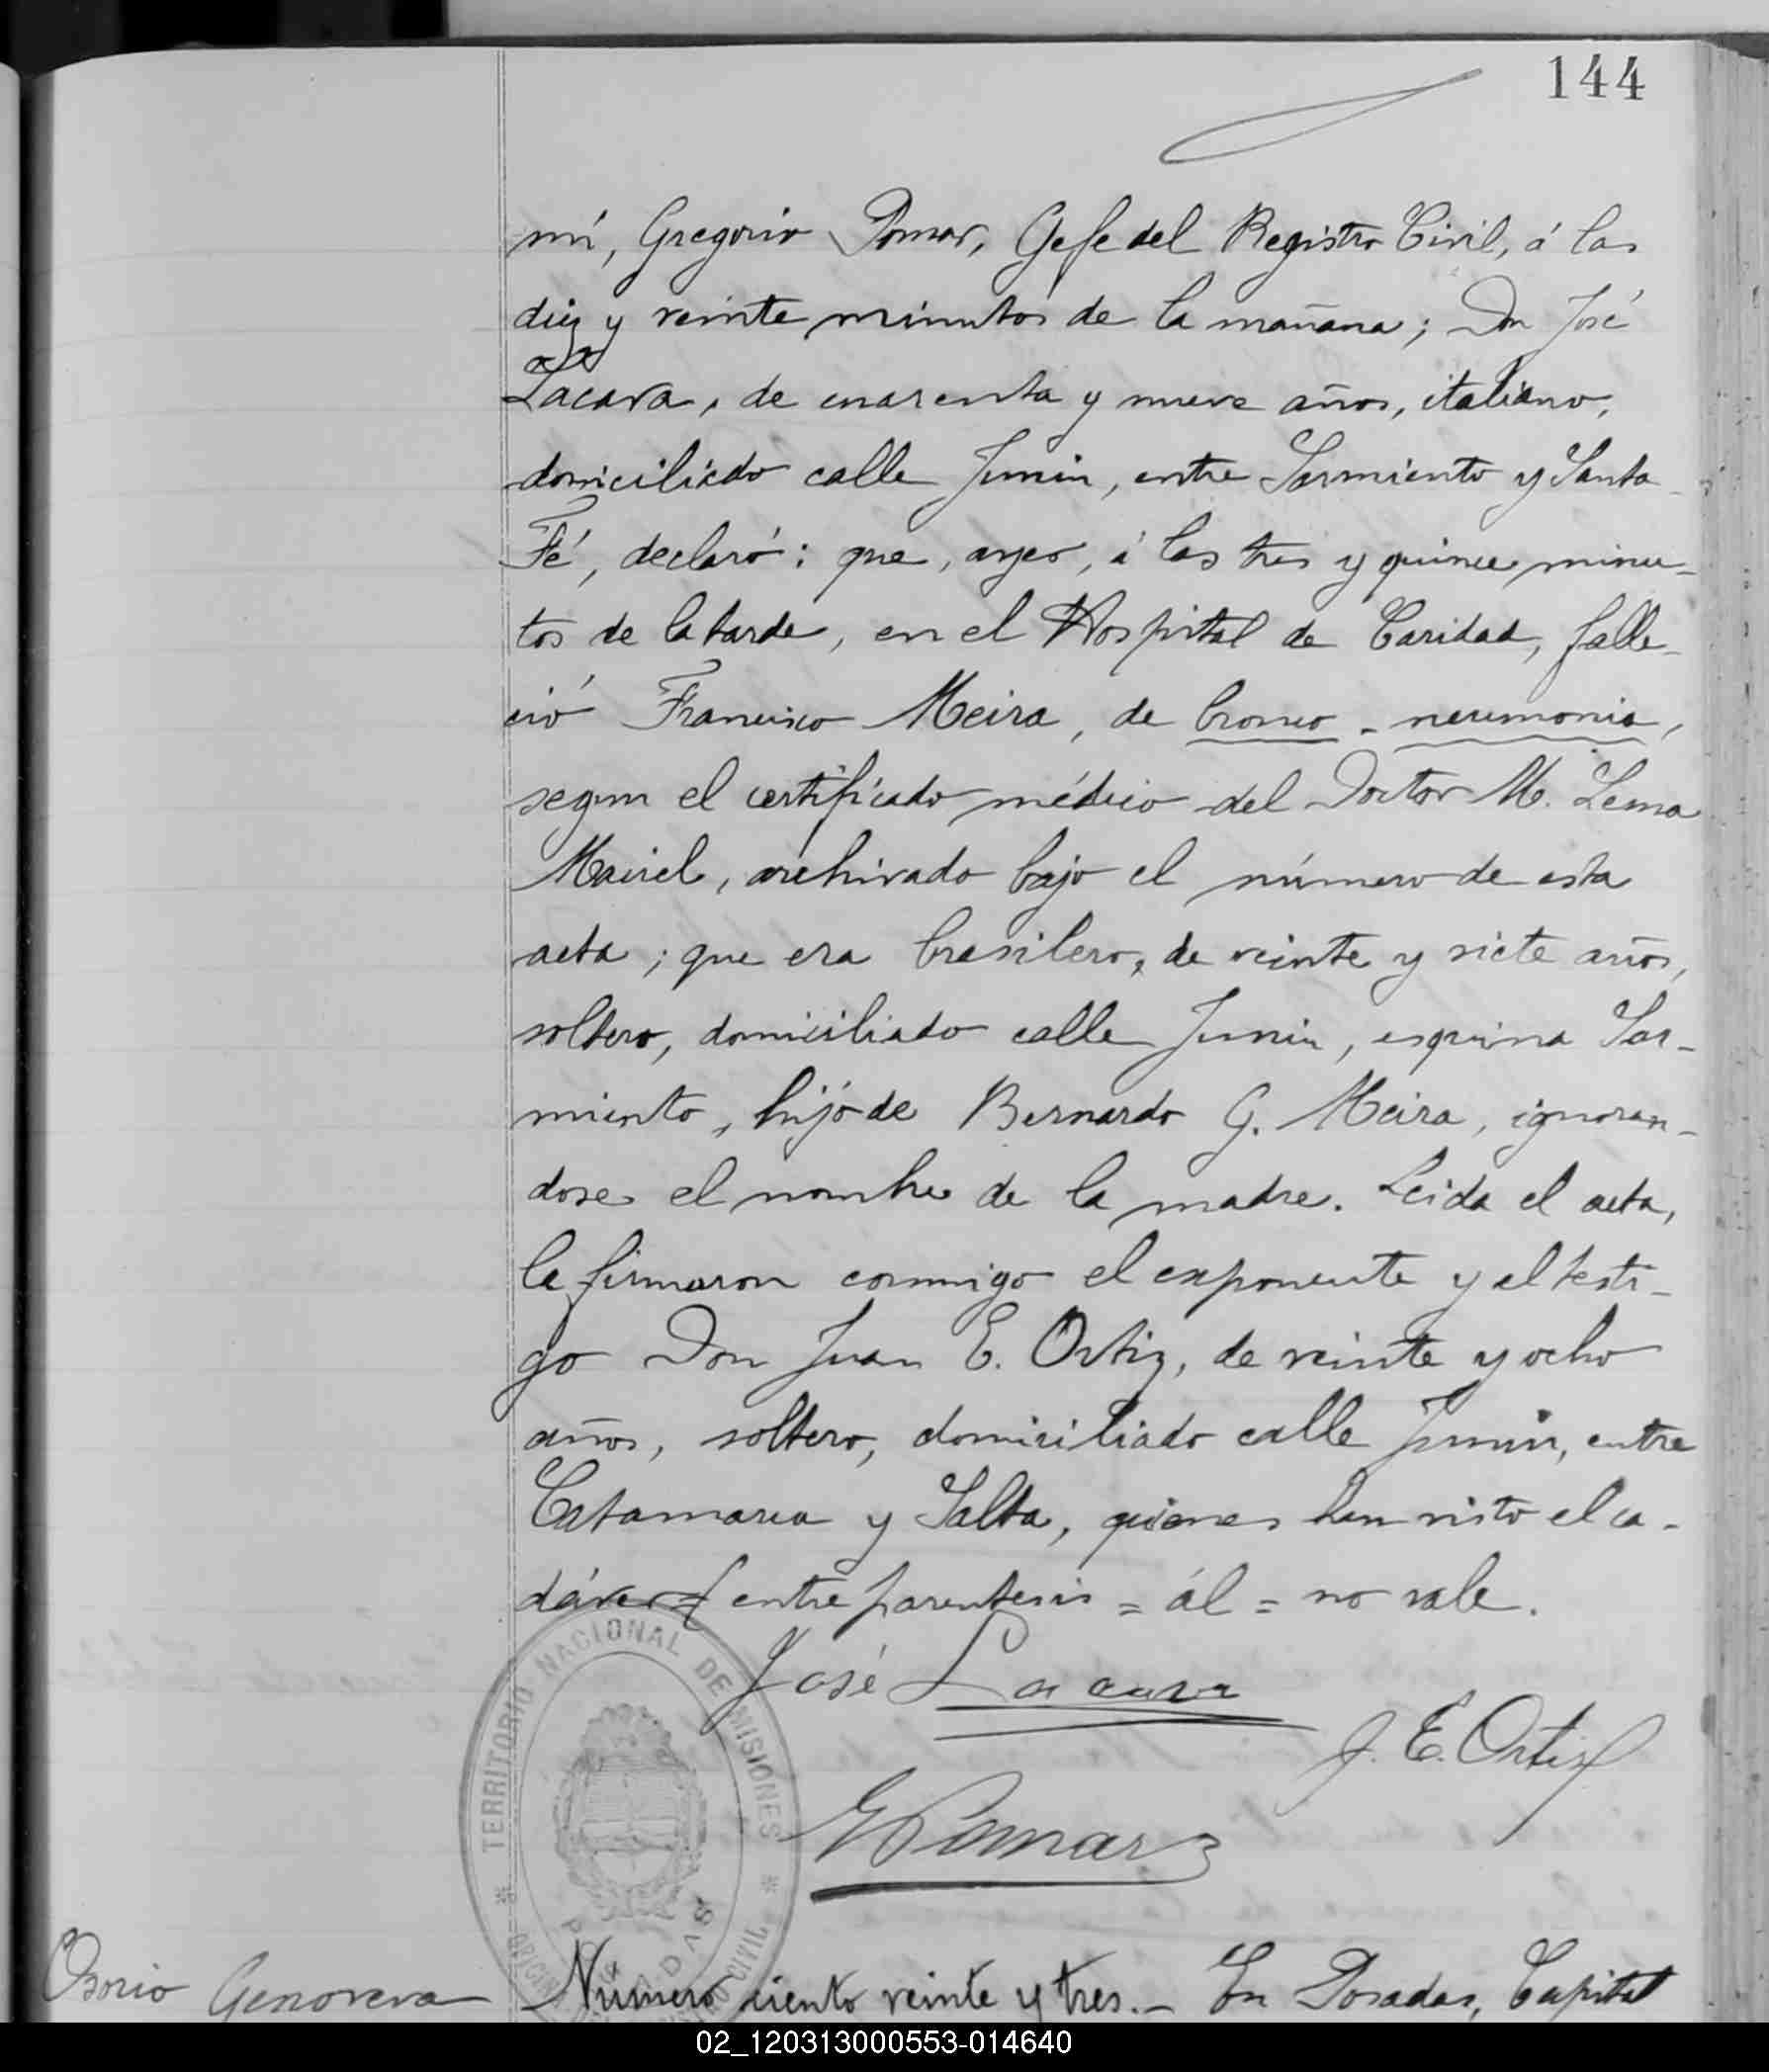 144
mí, Gregorio Pomar, Gefe del Registro Civil, á las
diez y veinte minutos de la mañana; Don José
Lacava, de cuarenta y nueve años, italiano,
domiciliado calle Junin, entre Sarmiento y Santa
Fé, declaró: que, ayer, á las tres y quince minu-
tos de la tarde, en el Hospital de Caridad, falle-
ció Francisco Meira, de bronco-neumonia,
segun el certificado médico del Doctor M. Lema
archivado bajo el número de esta
acta; que era brasilero, de veinte y siete años,
soltero, domiciliado calle Junin, esquina Sar-
miento, hijo de Bernardo G. Meira, ignoran-
dose el nombre de la madre. Leida el acta,
la firmaron conmigo el exponente y el testi-
go Don Juan E. Ortiz, de veinte y ocho
años, soltero, domiciliado calle Junin, entre
Catamarca y Salta, quienes han visto el ca-
dáver (entre parentesis = ál = no vale.
José Lacava
J. E. Ortiz
G Pomar
TERRITORIO NACIONAL DE MISIONES
POSADAS
CIVIL
Osorio Genoveva
Número ciento veinte y tres.- En Posadas, Capital
02_120313000553-014640